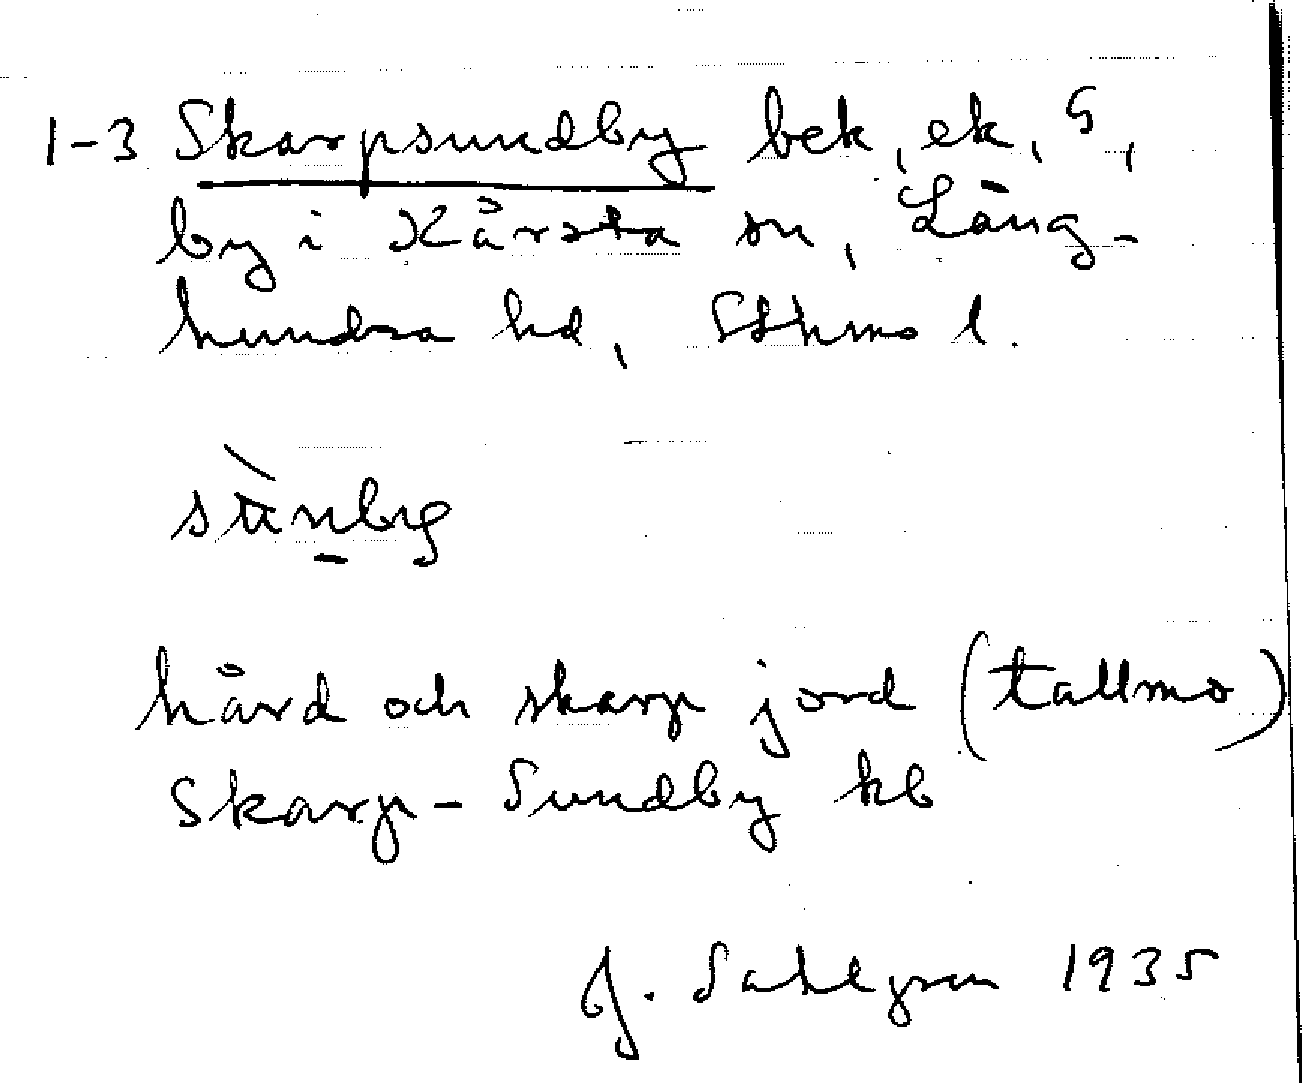 1-3 Skarpsundby bek, ek, G,
by i Kårsta sn, Lång-
hundra hd, Sthms l.
hård och skarp jord (tallmo)
Skarp-Sundby kb
J. Sahlgren 1935